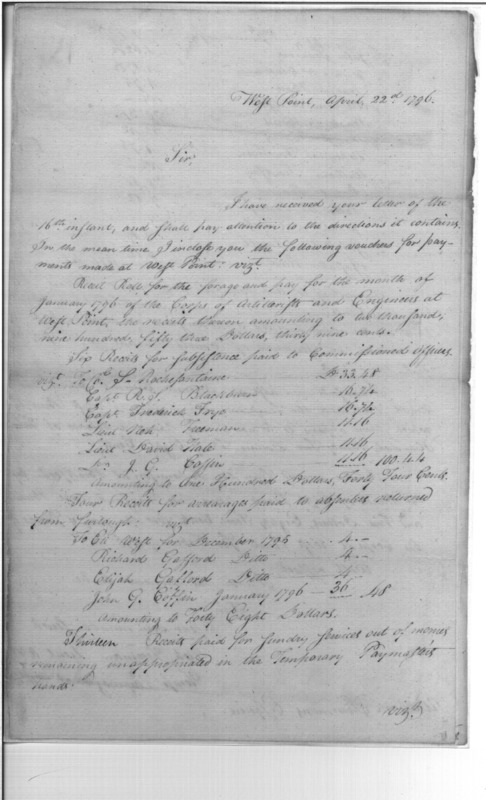 West Point, April, 22d 1796.
Sir,
I have received your letter of the
16th instant, and shall pay attention to the directions it contains,
In the mean time I inclose you the following vouchers for pay-
ments made at West Point: vizt.
Roll for the forage and pay for the month of
January 1796 of the Corps of Artillerists and Engineers at
West Point, the receits thereon amounting to two thousand,
nine hundred, fifty Dollars, thirty nine cents.
Six Receits for subsistence paid to Commissioned Officers
vizt. To S. Rochefontaine D 33.48
Capt. Blackburn 16.74
Capt. Frederick Frye 16.74
Lieut Noah Freeman 11.16
Lieut David Hale 11.16
Do. J. G. Coffin 11.16 100.44
amounting to One Hundred Dollars, Forty Four Cents.
Four Receits for arrearages paid to absentees returned
from furlough: vizt
To Eli West for December 1795 4.—
Richard Gafford Ditto 4.—
Elijah Gafford Ditto 4.
John G. Coffin January 1796 — 36 48
amounting to Forty Eight Dollars.
Thirteen Receits paid for sundry services out of monies
remaining unappropriated in the Temporary Paymasters
hands.
vizt.